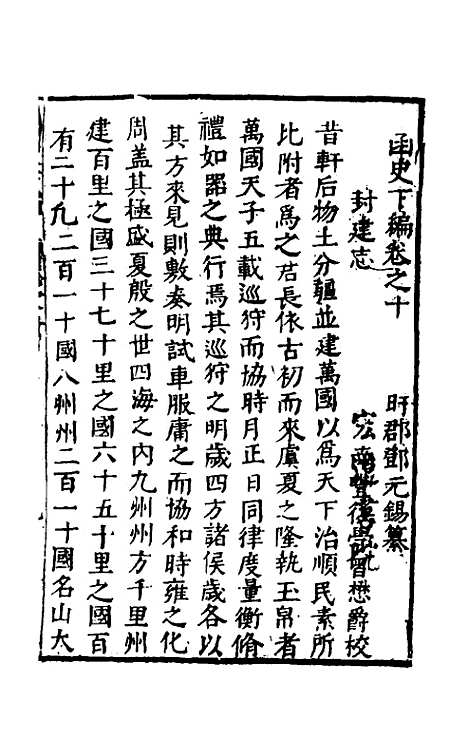 函史下編卷之十
盱郡鄧元錫纂
封建志
曾懋爵校
昔軒后物土分疆並建萬國以爲天下治順民素所
比附者爲之君長依古初而來虞夏之隆執玉帛者
萬國天子五載巡狩而協時月正日同律度量衡脩
禮如器之典行焉其巡狩之明歲四方諸侯歲各以
其方來見則敷奏明試車服庸之而協和時雍之化
周盖其極盛夏殷之世四海之内九州州方千里州
建百里之國三十七十里之國六十五十里之國百
有二十凡二百一十國八州州二百一十國名山大